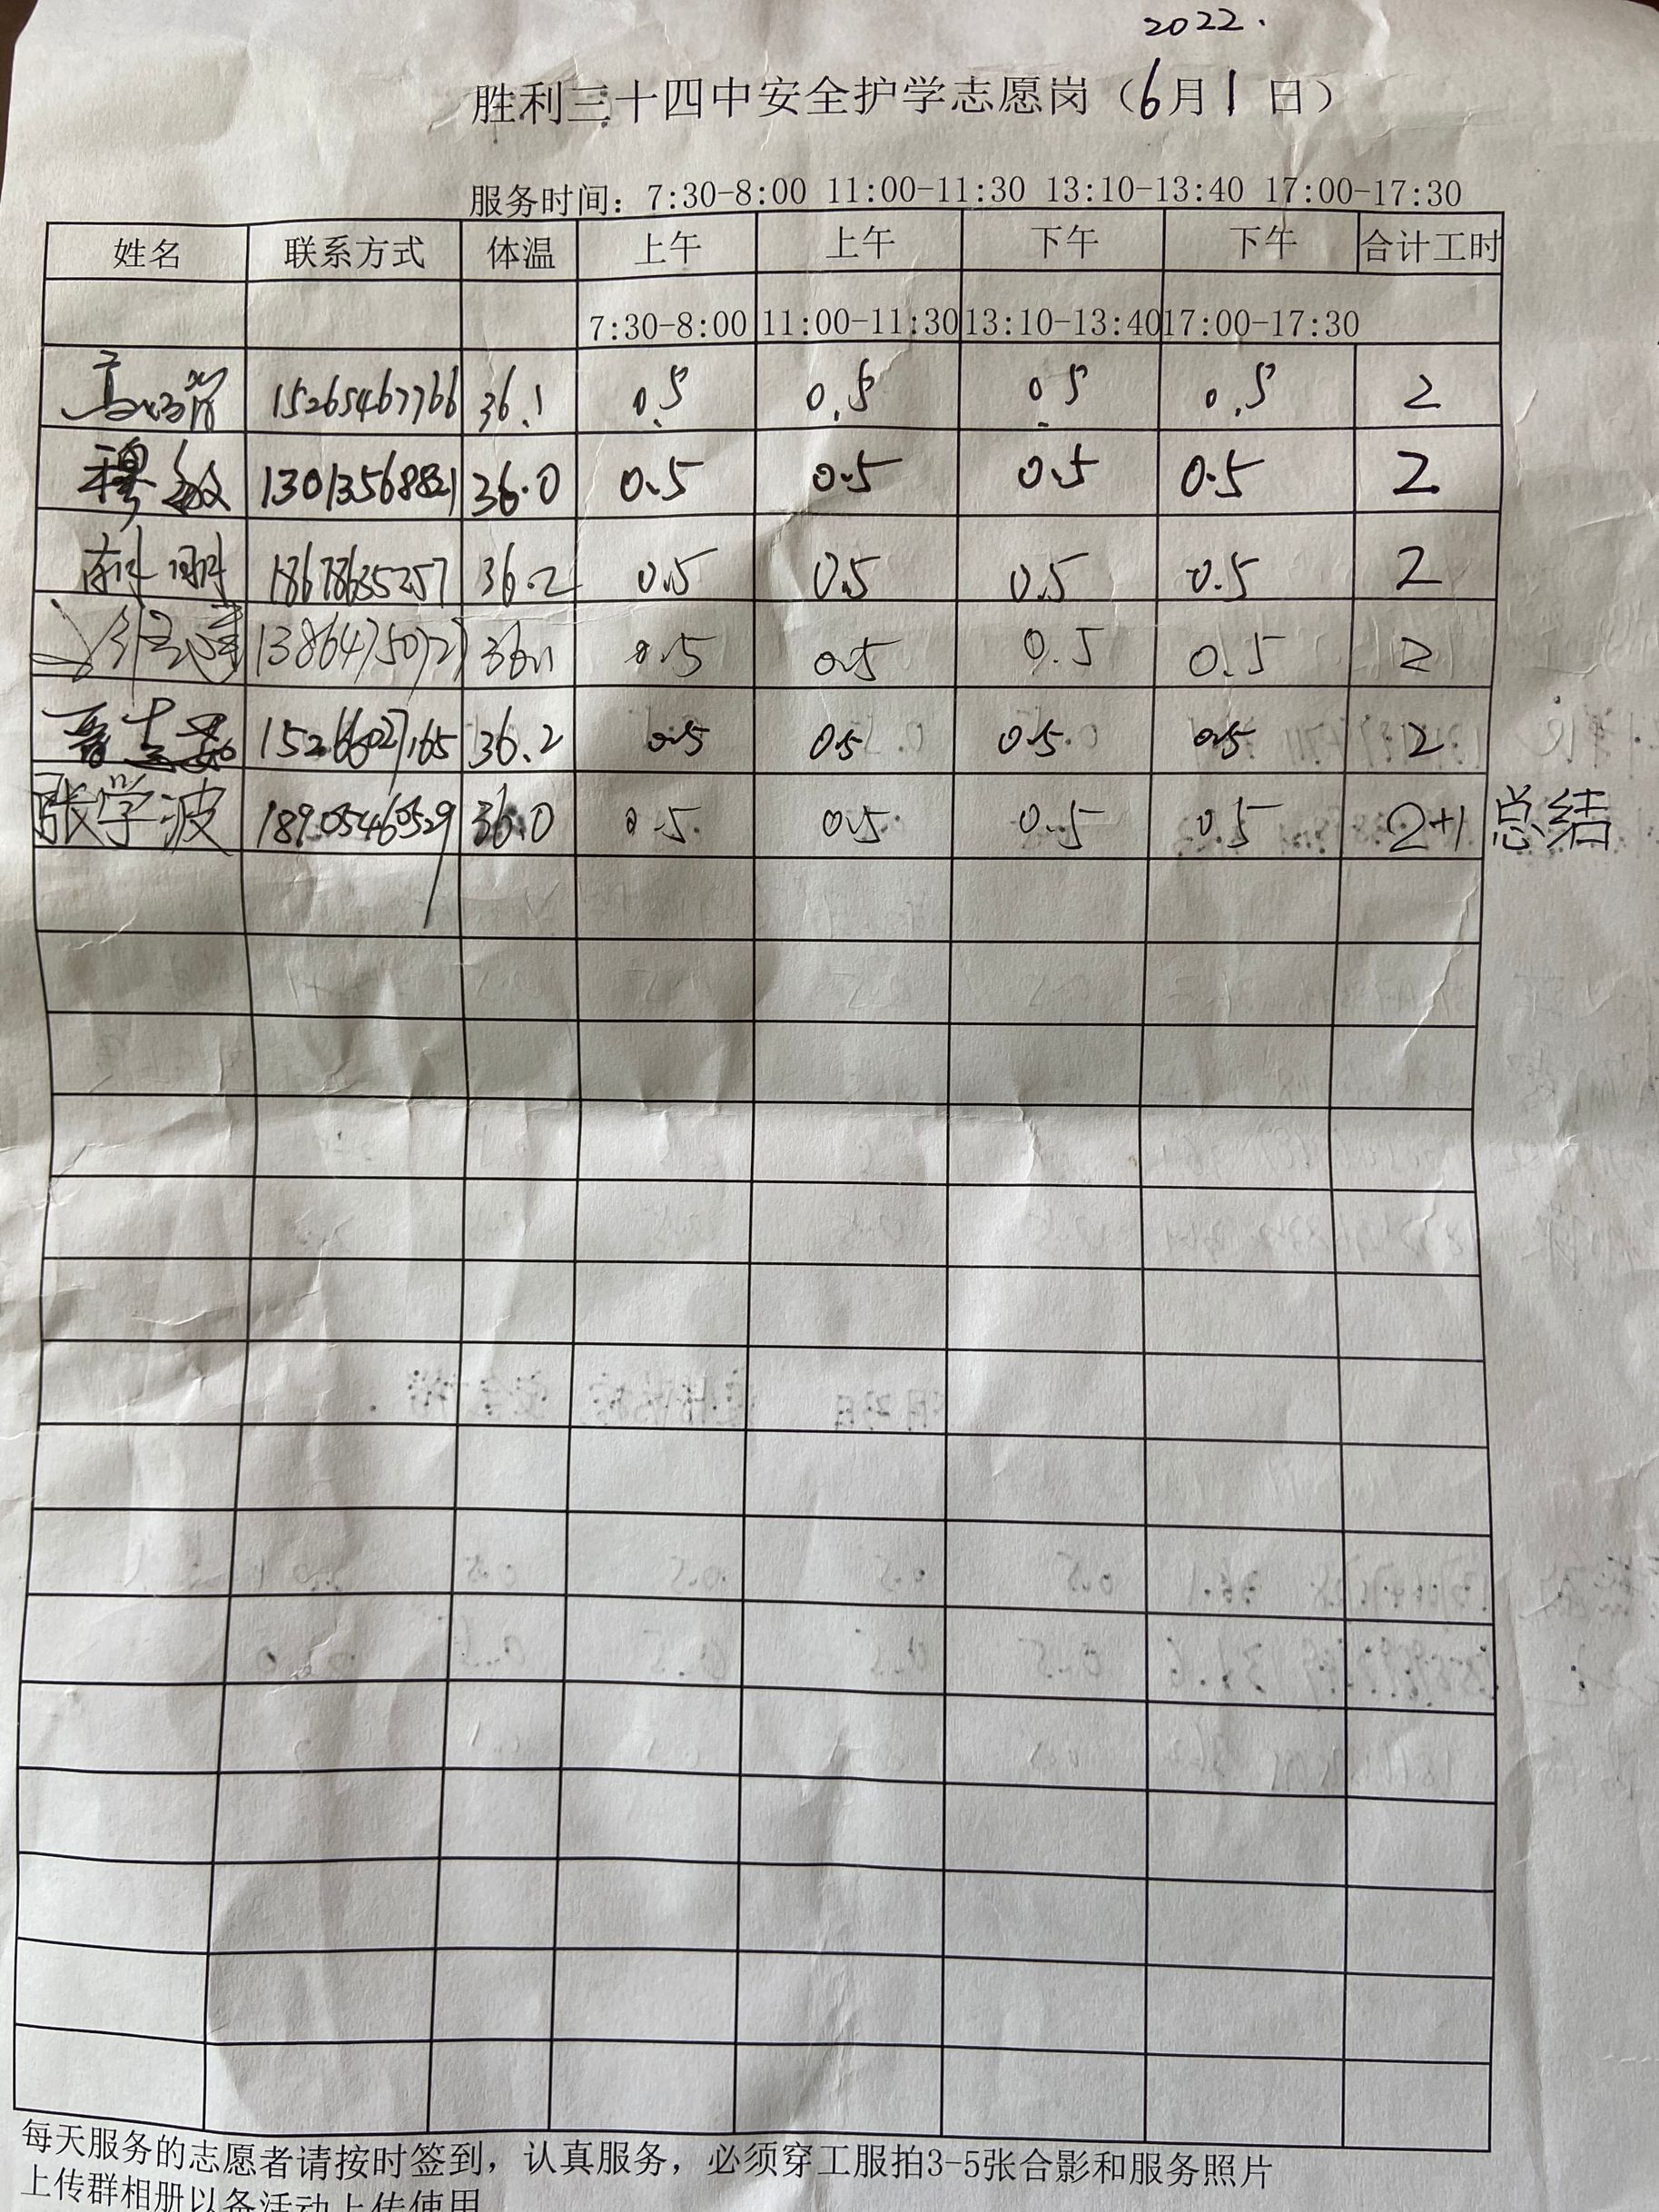 2022.
胜利三十四中安全护学志愿岗（6月1日）
服务时间：7:30-8:00 11:00-11:30 13:10-13:40 17:00-17:30
姓名 联系方式 体温 上午 上午 下午 下午 合计工时
7:30-8:00 11:00-11:30 13:10-13:40 17:00-17:30
15265467766 36.1 0.5 0.5 0.5 0.5 2
穆敏 13013568821 36.0 0.5 0.5 0.5 0.5 2
18678635257 36.2 0.5 0.5 0.5 0.5 2
36.1 0.5 0.5 0.5 0.5 2
15266027165 36.2 0.5 0.5 0.5 0.5 2
张学波 18905460529 36.0 0.5 0.5 0.5 0.5 2+1 总结
每天服务的志愿者请按时签到，认真服务，必须穿工服拍3-5张合影和服务照片
上传群相册以备活动上传使用